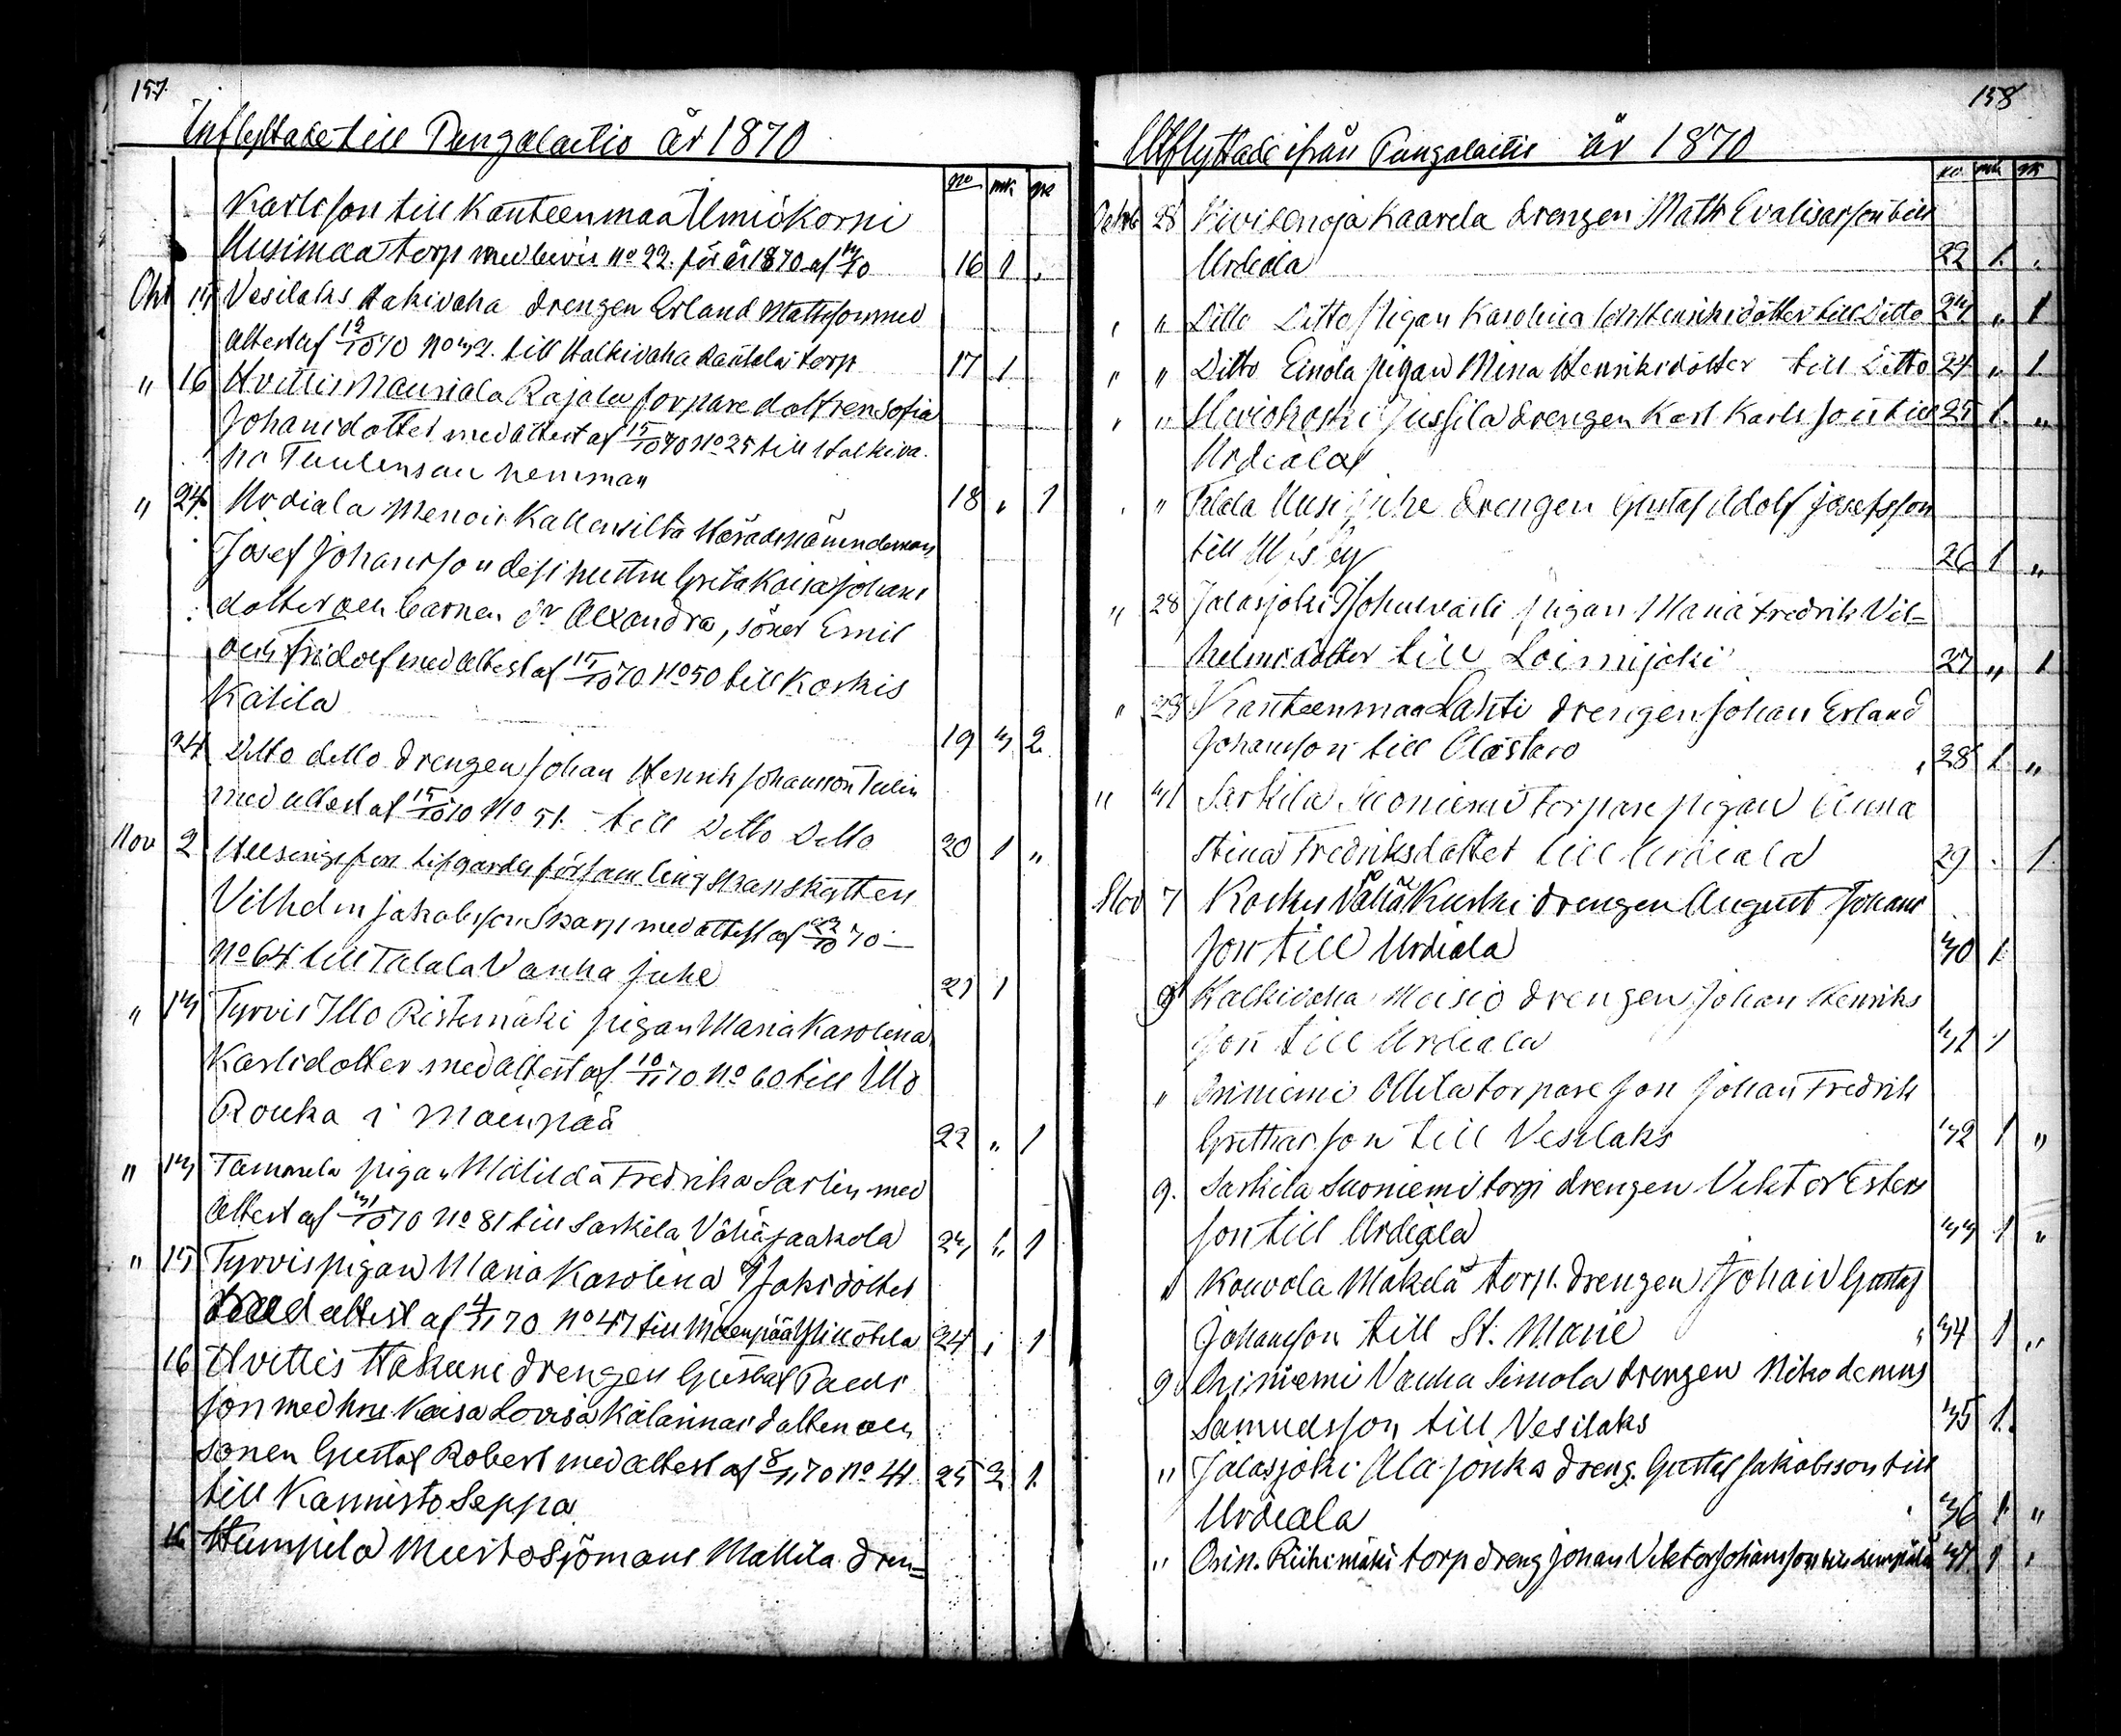 157.
Inflyttade till Pungalaitio år 1870
no mk qk
Karlsson till Kanteenmaa Ilmiökorni
Uusimaa torp med bevis no 22. för år 1870 af
16 1 "
Okt 14 Vesilaks Hakivaha drengen Erland Mattsson med
attest af 12/10 70 No 32. till Halkivaha Rautela torp 17 1
" 16 Hvittis Mauriala Rajala torpare dottren Sofia
Johansdotter med attest af 15/10 70 No 25 till Halkiva-
ha Tuulensuu hemman
18 " 1
" 24. Urdiala Menois Kallensilta Häradsnämndeman
Josef Johansson dess hustru Greta Kaisa Johans
dotter och barnen dr Alexandra, söner Emil
och Fridolf med attest af 15/10 70 No 50 till Koskis
Kätilä
19 3 2
24 Ditto ditto drengen Johan Henrik Johansson Tulin
med attest af 15/10 70 No 51. till Ditto Ditto 20 1 "
Nov 2 Helsingfors församling skarpskytten
Vilhelm Jakobsson Skarp med attest af 22/10 70 —
No 64 till Talala Vanha juhe 21 1
" 13 Tyrvis Illo Ristimäki pigan Maria Karolina
Karlsdotter med attest af 10/11 70 No 60 till Illo
Rouka i Mäenpää
22 " 1
" 13 Tammela pigan Matilda Fredrika Sarlin med
attest af 31/10 70 No 81 till Sarkila Vähäjaakola 23 " 1
" 15 Tyrvis pigan Maria Karolina Isaksdotter
med attest af 4/11 70 No 47 till Mäenpää Yliköhila 24 " 1
16 Hvittis Hakuni drengen Gustaf Paul
son med hru Kaisa Lovisa Kalarinas dotter och
sonen Gustaf Robert med attest af 8/11 70 No 41. 25 2 1.
till Kannisto Seppä
16 Humpila Murto Sjömans Mattila dren=
158
Utflyttade ifrån Pungalaitio år 1870
no mk qk
Oktob 23 Kivisenoja Kaarela drengen Math Evalisasson till
Urdiala 22 1. .
" " Ditto Ditto pigan Karolina Henriksdotter till Ditto 23. " 1
" " Ditto Einola pigan Mina Henriksdotter till Ditto 24. " 1.
" " Haviokoski Jussila drengen Karl Karlsson till 25 1. "
Urdiala
" " Talala Uusi juhe drengen Gustaf Adolf Josefsson
till
26 1 "
" 28 Jalasjoki pigan Maria Fredrik Vil=
helmsdotter till Loimijoki 27 " 1
" 29 Kanteenmaa Lahti drengen Johan Erland
Johansson till Alastaro 28 1. "
" 31 Sarkila Suoniemi torpare pigan Anna
Stina Fredriksdotter till Urdiala 29 . 1
Nov 7 Koskis Vähä Kurki drengen August Johans
son till Urdiala 30 1.
9 Halkivaha Moisio drengen Johan Henriks
son till Urdiala 31 1
" Oriniemi Ollila torpare son Johan Fredrik
Grethasson till Vesilaks 32 1 "
9. Sarkila Suoniemi torp drengen Viktor Esters
son till Urdiala 33 1 "
" Kouvola Mäkelä torp. drengen Johan Gustaf
Johansson till St. Marie 34 1 "
9 Oriniemi Vanha Simola drengen Nikodemus
Samuelsson till Vesilaks 35 1.
" Jalasjoki Ala jouka dreng. Gustaf Jakobsson till
Urdiala 36 1. "
" Orin. Riihimäki torp dreng Johan Viktor Johansson till Lempäälä 37. 1 .